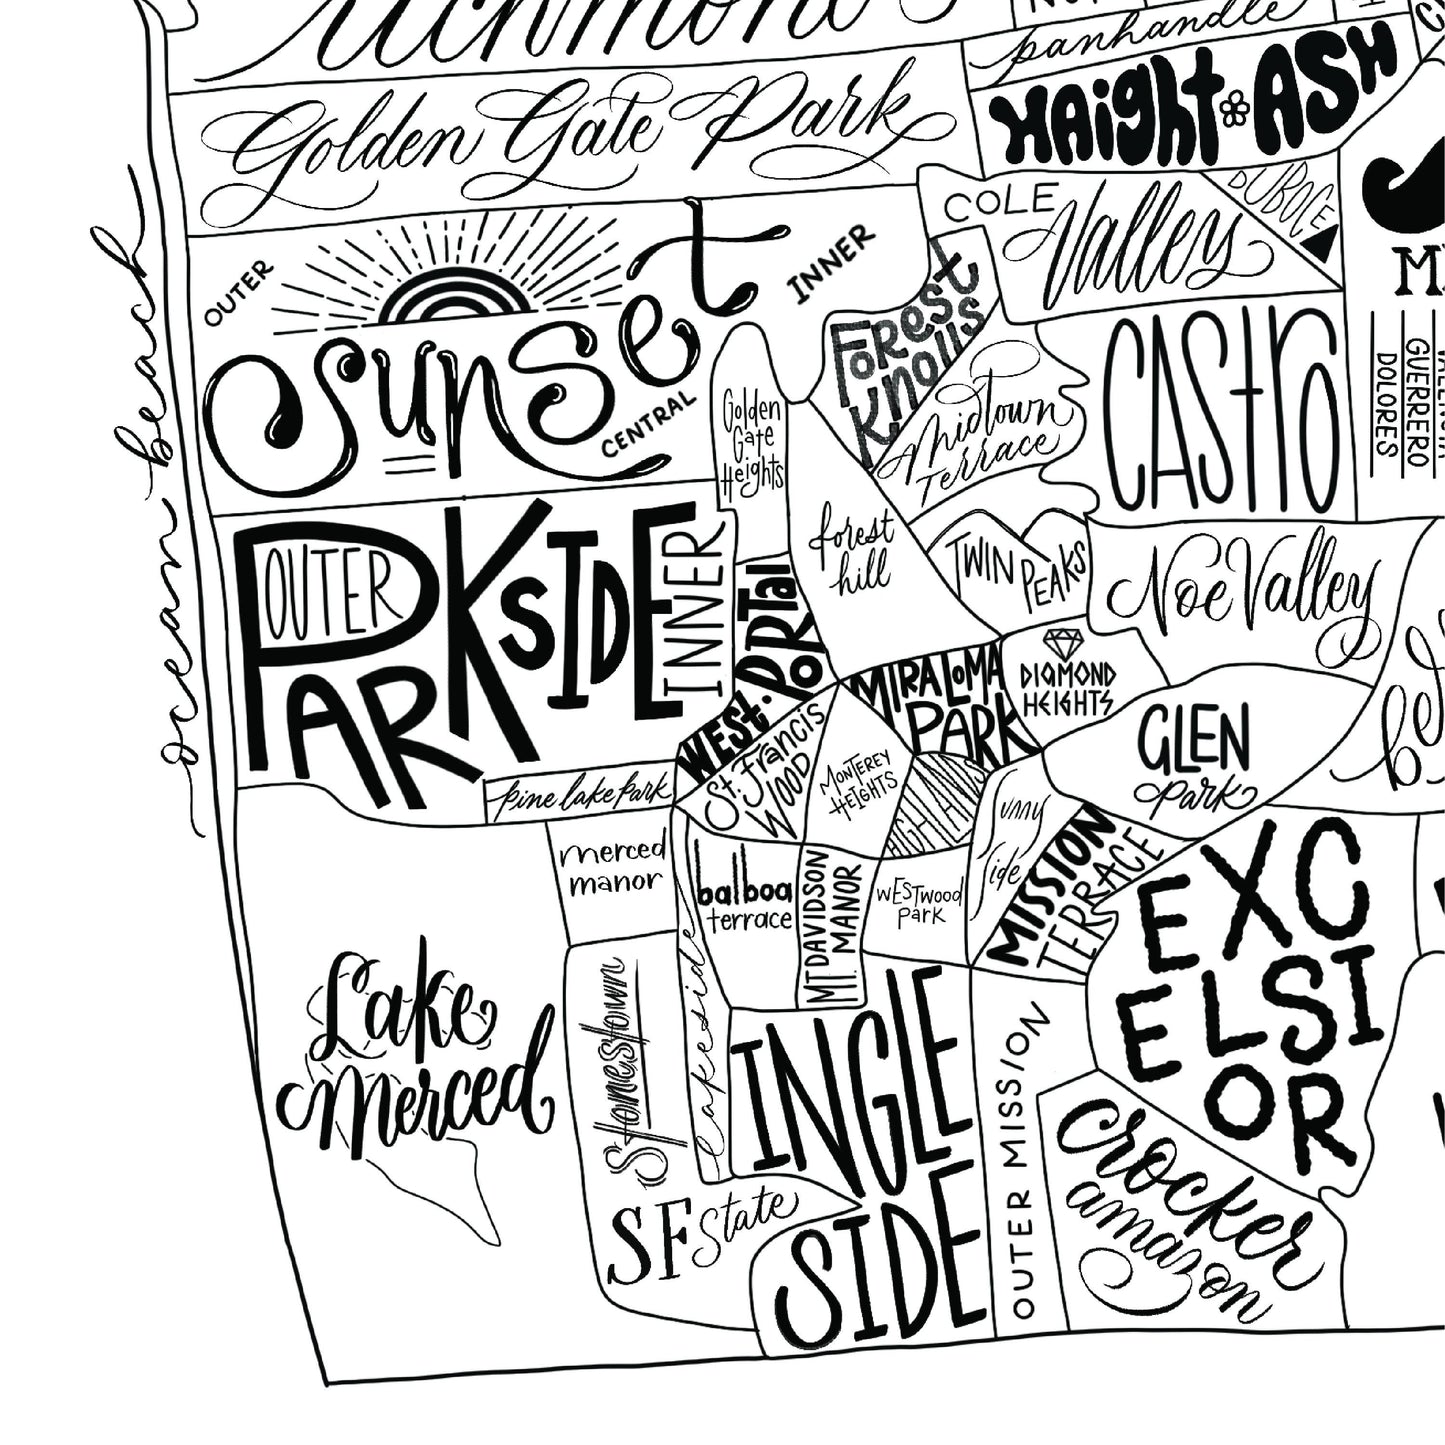 panhandle
Golden Gate Park
HAight ASH
COLE
Valley
DUBOCE
OUTER
sunset
INNER
CENTRAL
ocean beach
Forest
Knolls
Midtown
Terrace
CAStro
GUERRERO
DOLORES
Golden
Gate
Heights
forest
hill
TWIN PEAKS
Noe Valley
OUTER
PARKSIDE
INNER
WEST PORTal
MIRALOMA
PARK
DIAMOND
HEIGHTS
GLEN
park
St. Francis
WOOD
MONTEREY
HEIGHTS
pine lake park
Sunny
side
MISSION
TERRACE
merced
manor
balboa
terrace
MT DAVIDSON
MANOR
WESTwood
Park
EXC
ELSI
OR
Lake
Merced
Stonestown
Lakeside
SF State
INGLE
SIDE
OUTER MISSION
crocker
amazon